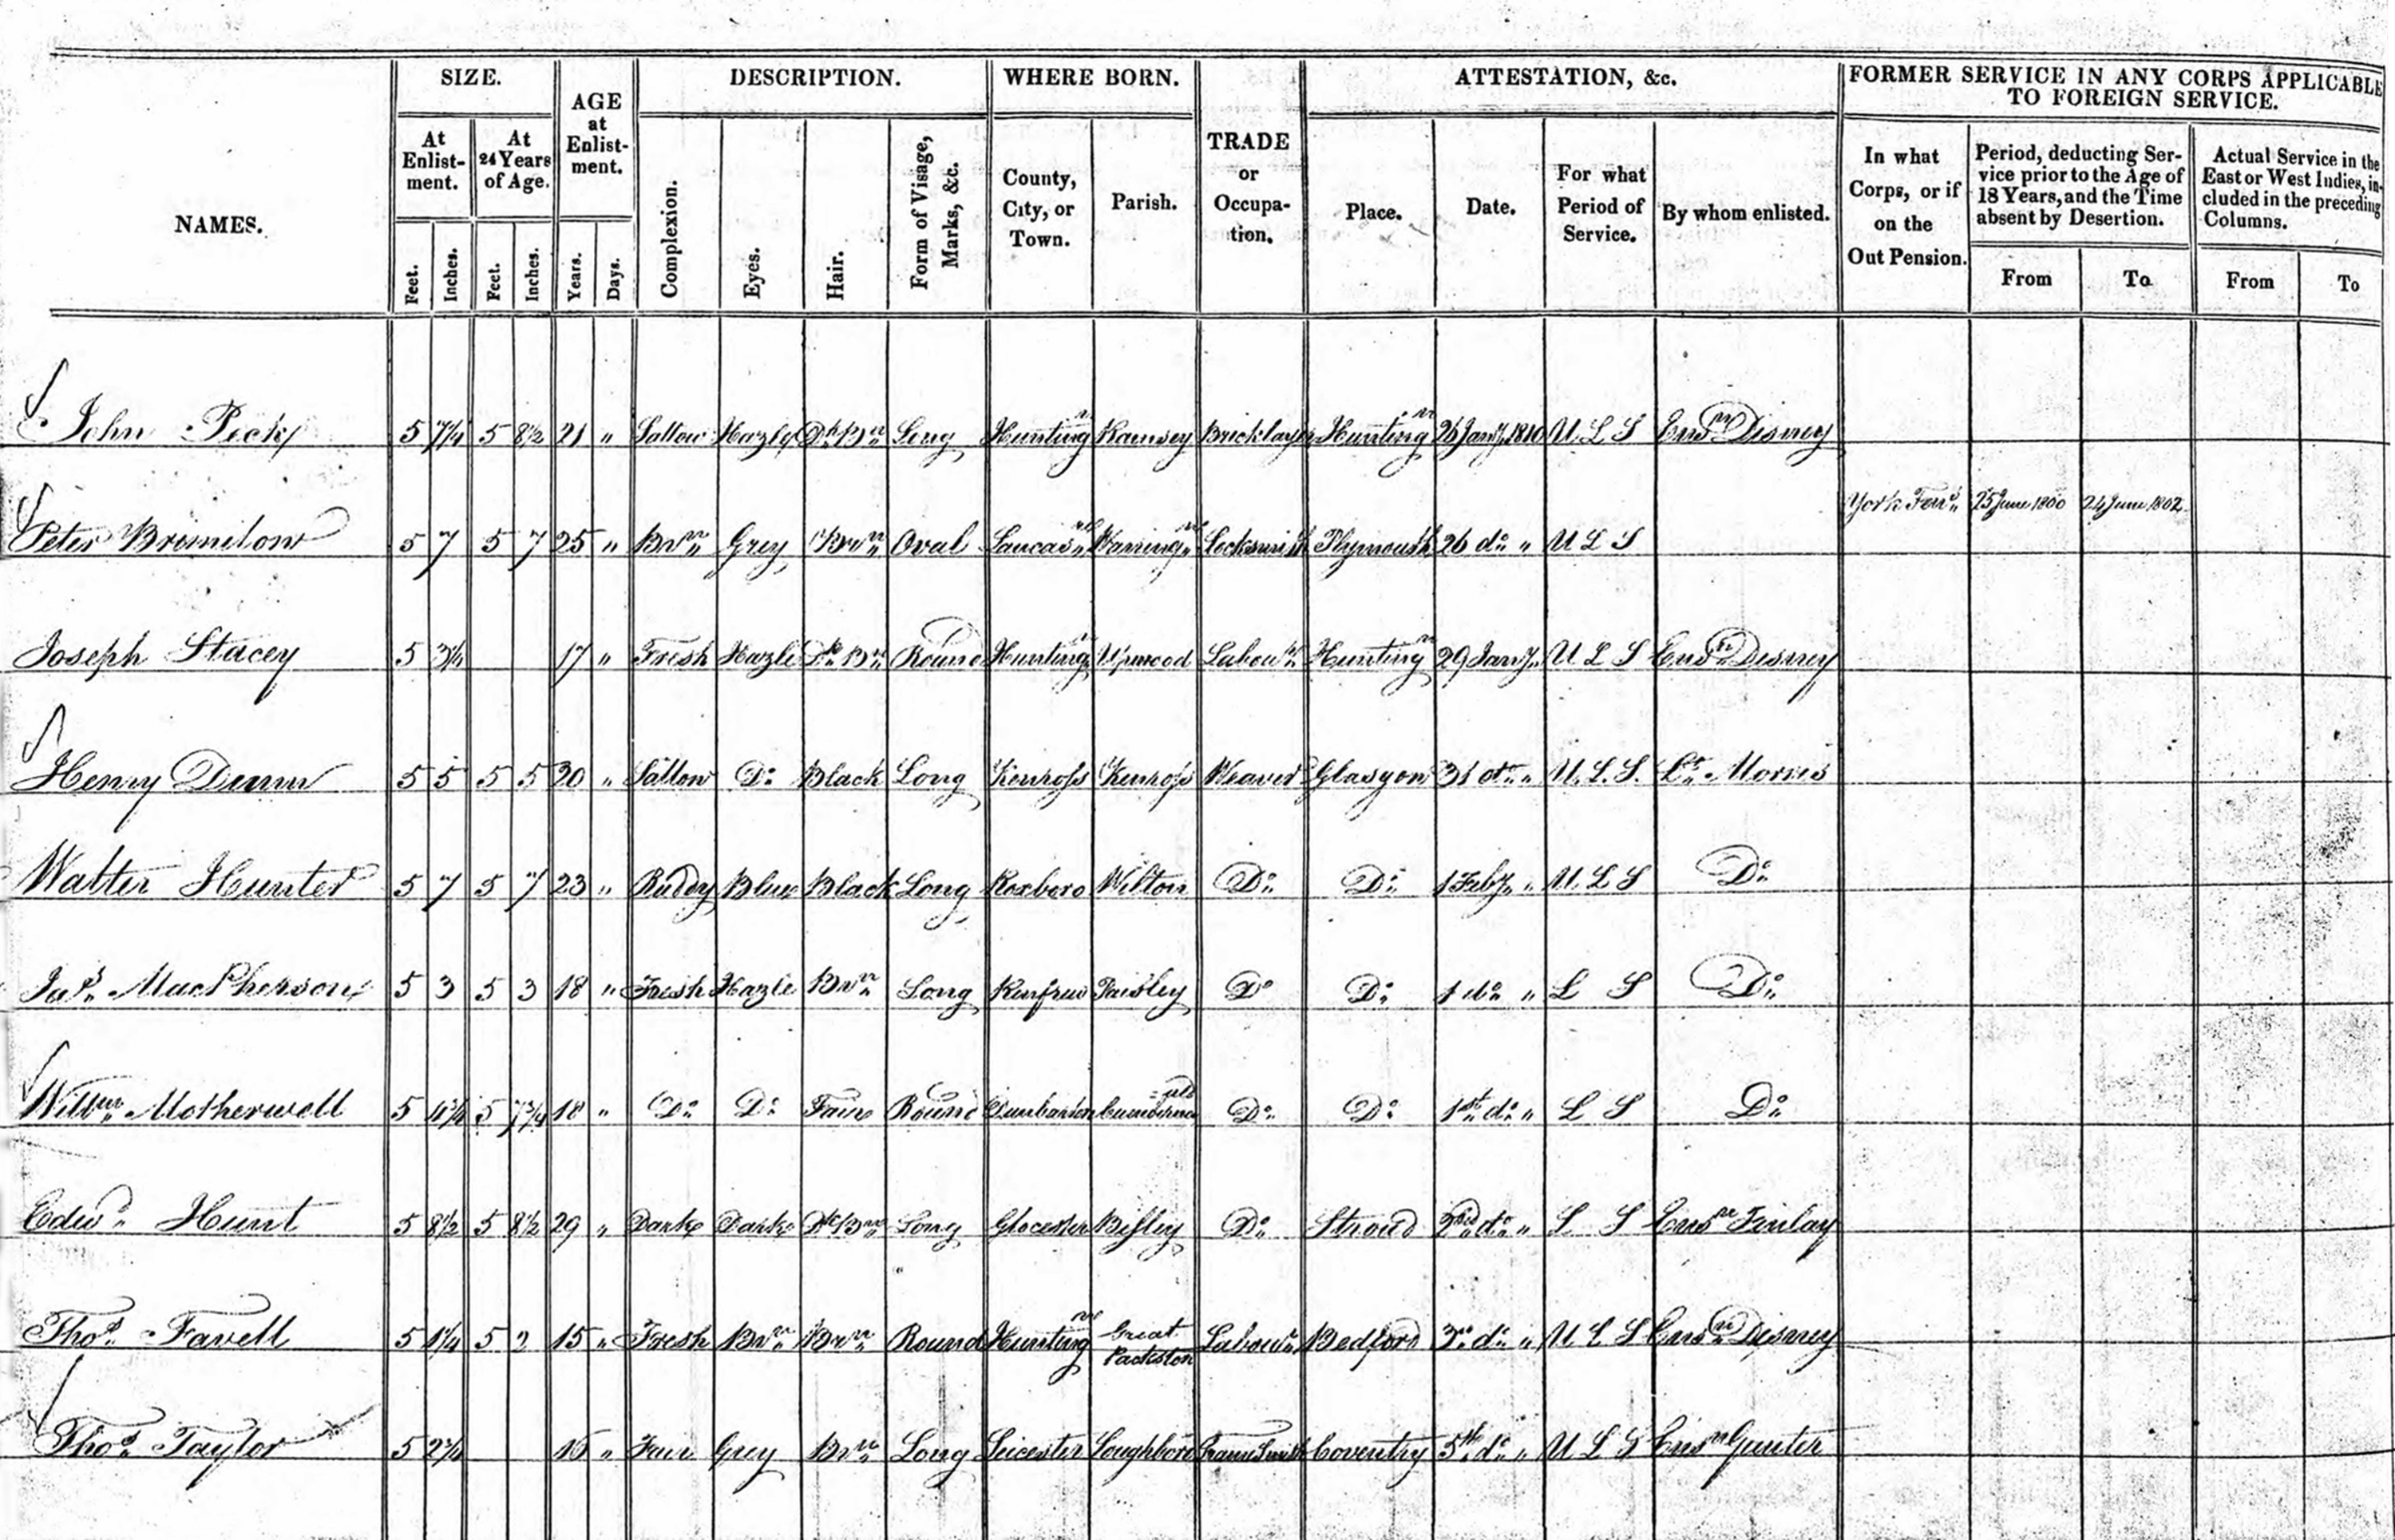 SIZE. DESCRIPTION. WHERE BORN. ATTESTATION, &c. FORMER SERVICE IN ANY CORPS APPLICABLE
TO FOREIGN SERVICE.
NAMES.
At Enlist-ment.
At 24 Years of Age.
AGE at Enlist-ment.
Complexion.
Eyes.
Hair.
Form of Visage, Marks, &c.
County, City, or Town.
Parish.
TRADE or Occupa-tion.
Place.
Date.
For what Period of Service.
By whom enlisted.
In what Corps, or if on the Out Pension.
Period, deducting Ser-vice prior to the Age of 18 Years, and the Time absent by Desertion.
Actual Service in the East or West Indies, in-cluded in the preceding Columns.
Feet. Inches. Feet. Inches. Years. Days. From To From To
John Peck 5 7¼ 5 8½ 21 " Sallow Hazle Dk Brn Long Hunting n Ramsey Bricklayer Hunting n 26 Jany 1810 U L S Ensn Disney
Peter Bromilow 5 7 5 7 25 " Brn Grey Brn Oval Lancasr Warringn Locksmith Plymouth 26 do " U L S York Fens 25 June 1800 24 June 1802
Joseph Stacey 5 3¼ 17 " Fresh Hazle Dk Brn Round Hunting n Upwood Labour Hunting n 29 Jany U L S Ensn Disney
Henry Dunn 5 5 5 5 30 " Sallow Do Black Long Kenross Kenross Weaver Glasgow 31 do " U.L.S. Lt Morris
Walter Hunter 5 7 5 7 23 " Ruddy Blue Black Long Roxboro Wilton Do Do 1 Feby " U L S Do
Jas MacPherson 5 3 5 3 18 " Fresh Hazle Brn Long Renfrew Paisley Do Do 1 do " L S Do
Willm Motherwell 5 4¼ 5 7¾ 18 " Do Do Fair Round Dunbarton Do Do 1st do " L S Do
Edwd Hunt 5 8½ 5 8½ 29 " Dark Dark Dk Brn Long Glocester Bisley Do Stroud 2nd do " L S Ensn Finlay
Thos Favell 5 1¼ 5 2 15 " Fresh Brn Brn Round Hunting n Great Packston Labour Bedford 3 do " U L S Ensn Disney
Thos Taylor 5 2¼ 16 " Fair Grey Brn Long Leicester Loughboro Framesmith Coventry 5th do " U L S Ensn Gunter